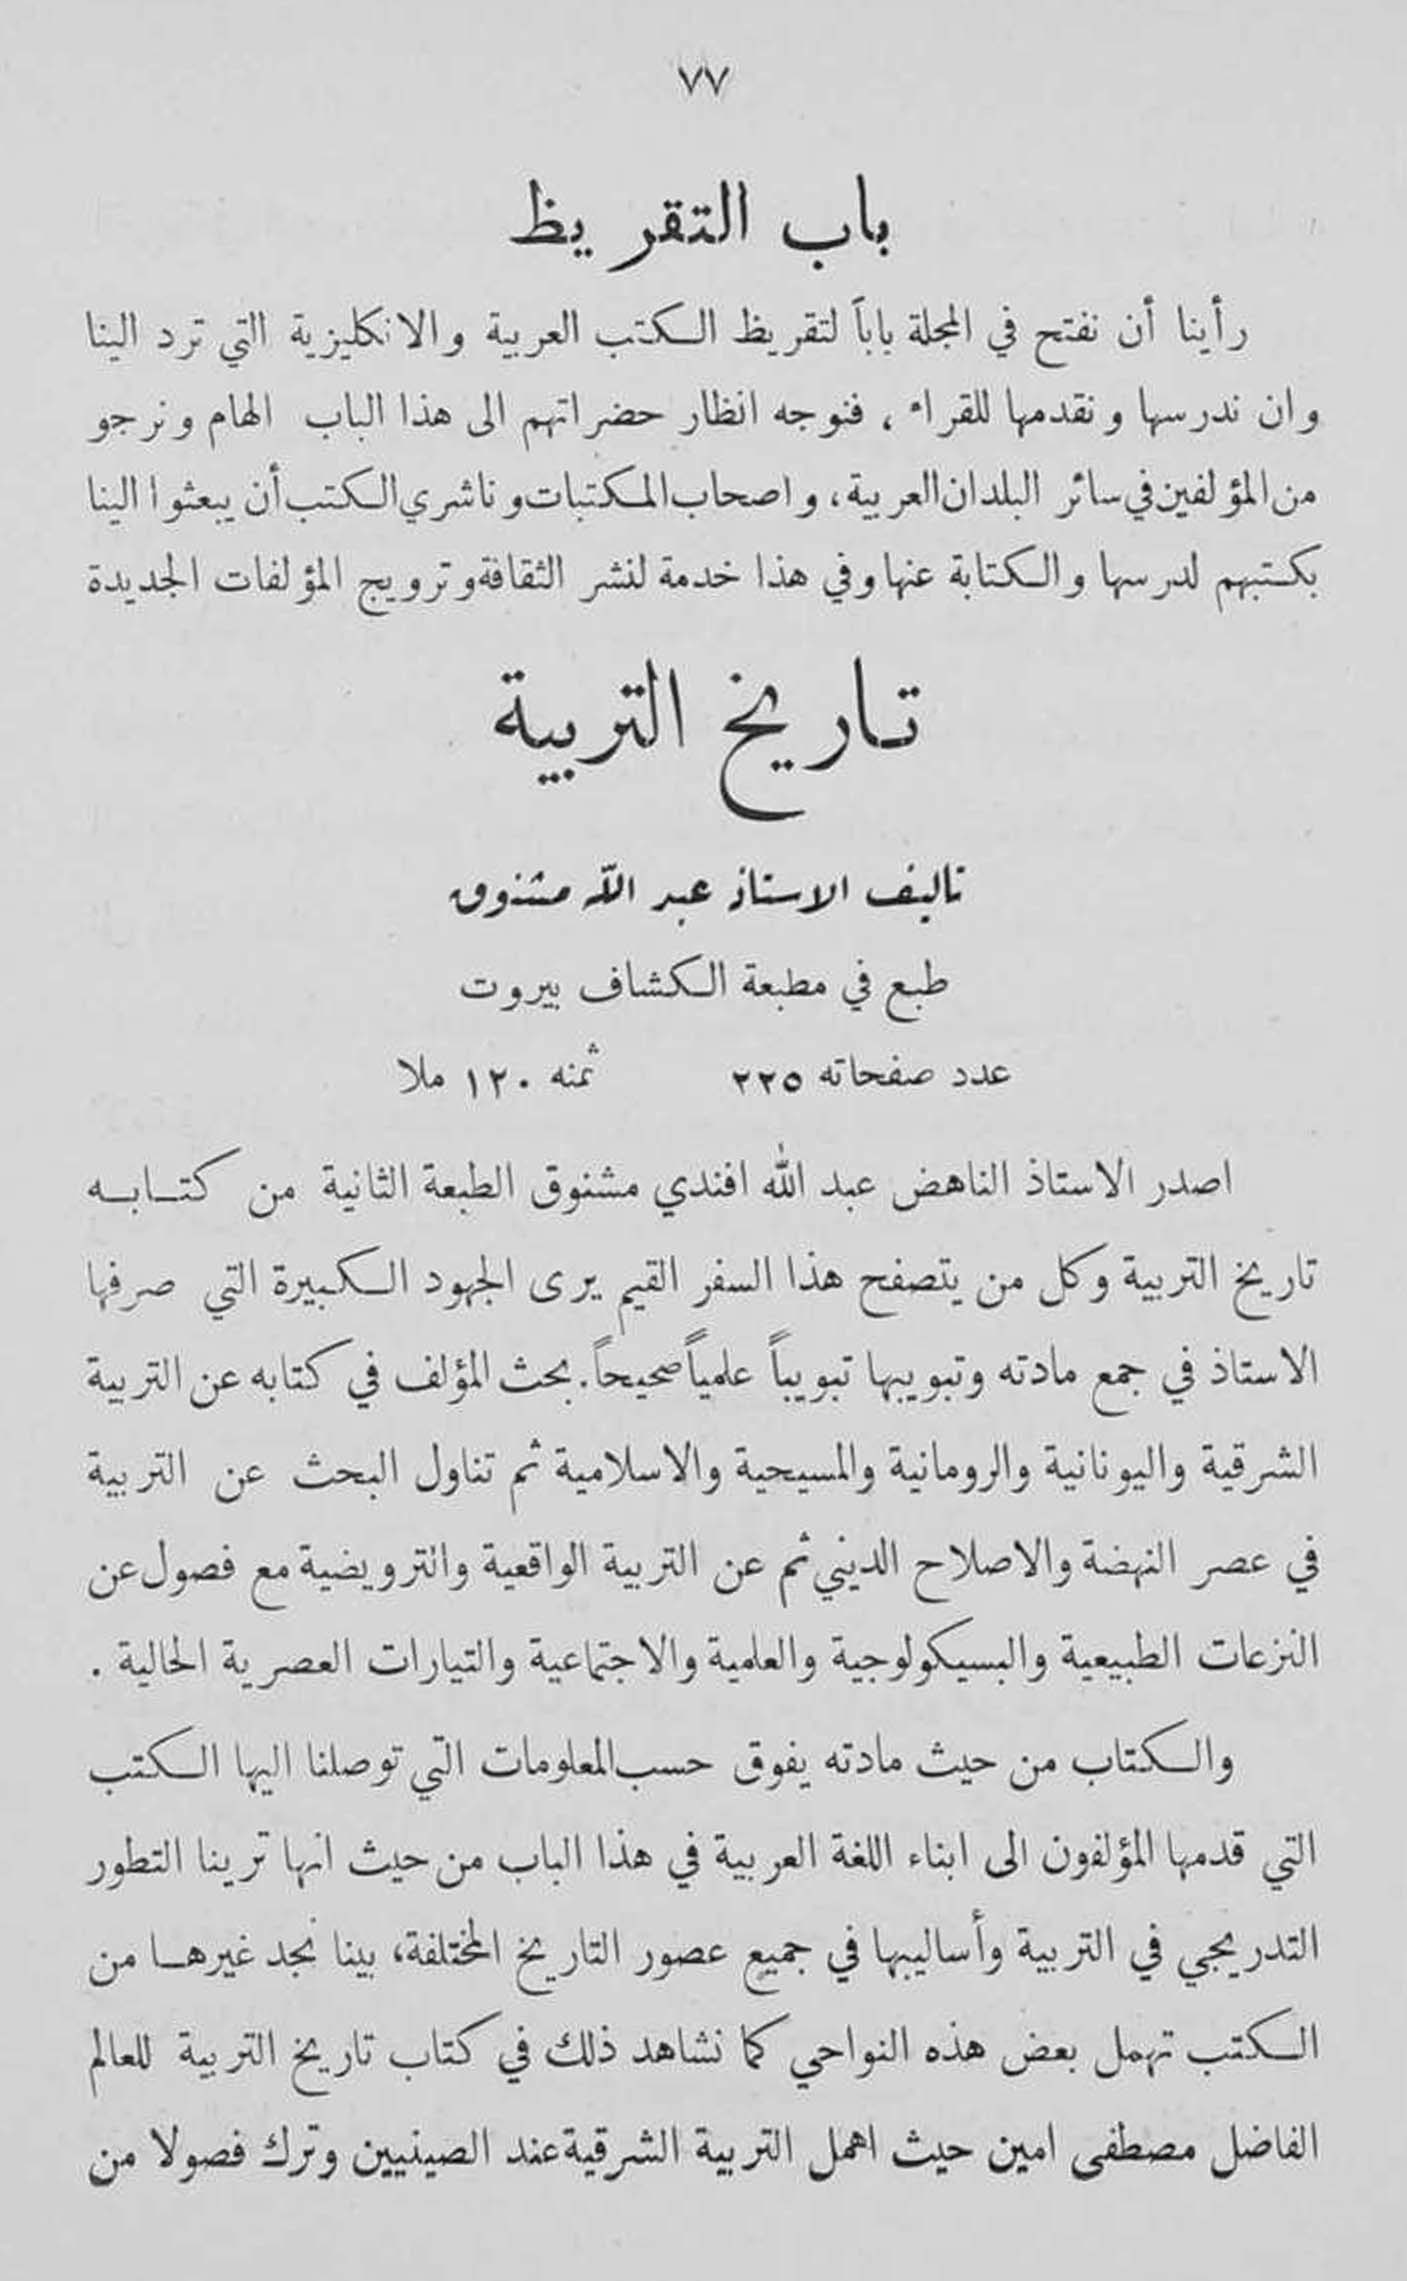 ٧٧
باب التقريظ
رأينا أن نفتح في المجلة باباً لتقريظ الكتب العربية والانكليزية التي ترد الينا
وان ندرسها ونقدمها للقراء ، فنوجه انظار حضراتهم الى هذا الباب الهام ونرجو
من المؤلفين في سائر البلدان العربية، واصحاب المكتبات وناشري الكتب أن يبعثوا الينا
بكتبهم لدرسها والكتابة عنها وفي هذا خدمة لنشر الثقافة وترويج المؤلفات الجديدة
تاريخ التربية
تاليف الاستاذ عبد الله مشنوق
طبع في مطبعة الكشاف بيروت
عدد صفحاته ٢٢٥ ثمنه ١٢٠ ملا
اصدر الاستاذ الناهض عبد الله افندي مشنوق الطبعة الثانية من كتابه
تاريخ التربية وكل من يتصفح هذا السفر القيم يرى الجهود الكبيرة التي صرفها
الاستاذ في جمع مادته وتبويبها تبويباً علمياً صحيحاً. بحث المؤلف في كتابه عن التربية
الشرقية واليونانية والرومانية والمسيحية والاسلامية ثم تناول البحث عن التربية
في عصر النهضة والاصلاح الديني ثم عن التربية الواقعية والترويضية مع فصول عن
النزعات الطبيعية والبسيكولوجية والعلمية والاجتماعية والتيارات العصرية الحالية .
والكتاب من حيث مادته يفوق حسب المعلومات التي توصلنا اليها الكتب
التي قدمها المؤلفون الى ابناء اللغة العربية في هذا الباب من حيث انها ترينا التطور
التدريجي في التربية وأساليبها في جميع عصور التاريخ المختلفة، بينا نجد غيرها من
الكتب تهمل بعض هذه النواحي كما نشاهد ذلك في كتاب تاريخ التربية للعالم
الفاضل مصطفى امين حيث اهمل التربية الشرقية عند الصينيين وترك فصولا من